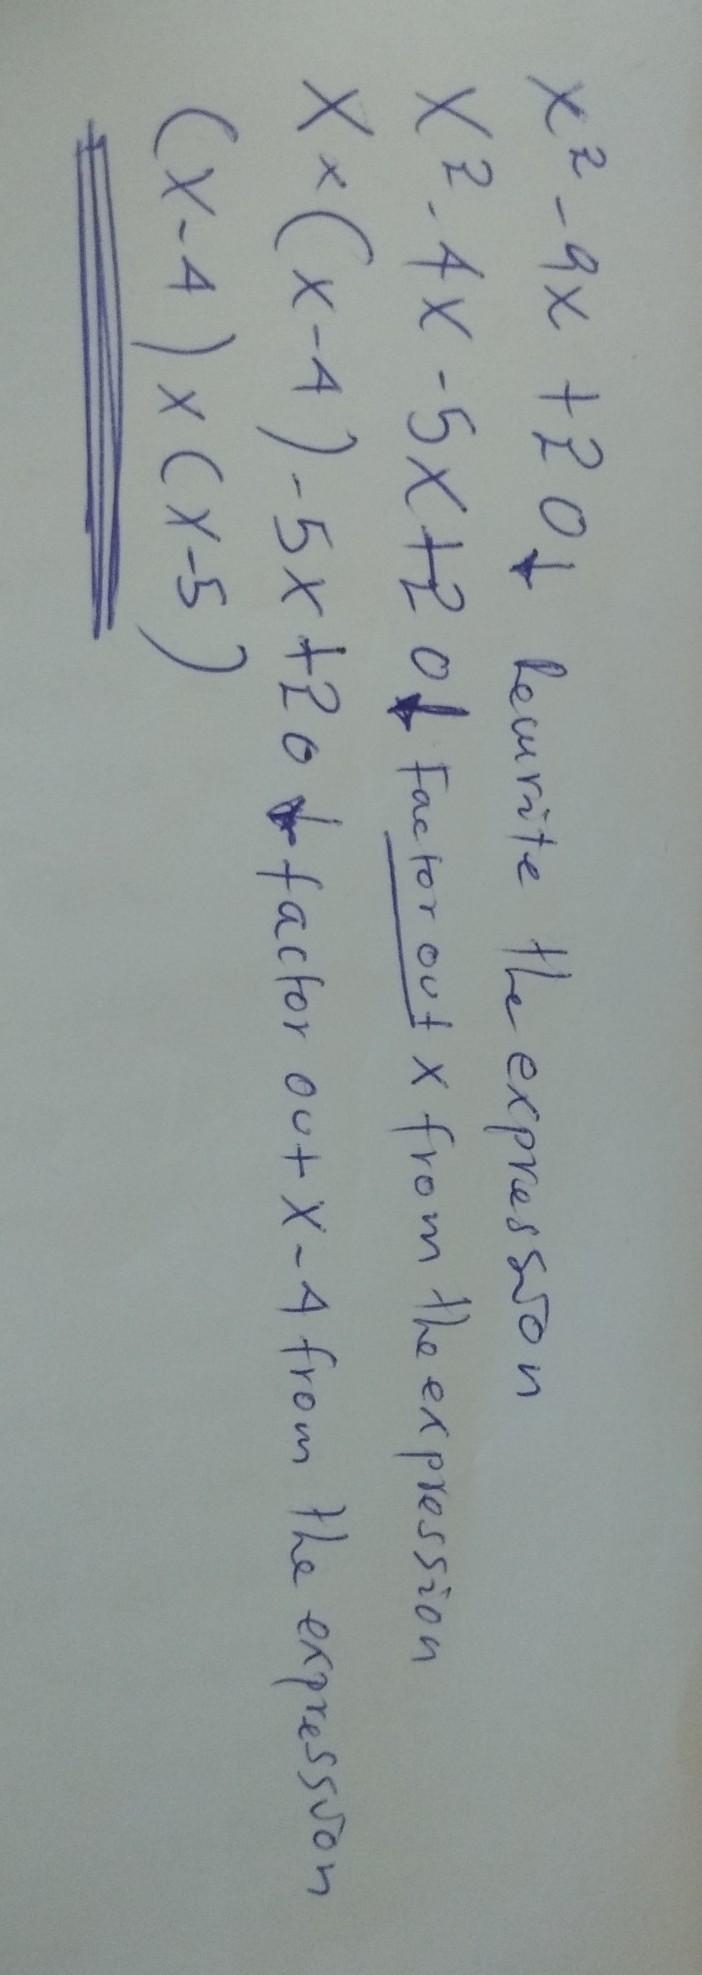 x² - 9x + 20 ↓ Rewrite the expression
x² - 4x - 5x + 20 ↓ Factor out x from the expression
X × (x - 4) - 5x + 20 ↓ factor out x - 4 from the expression
(x - 4) × (x - 5)